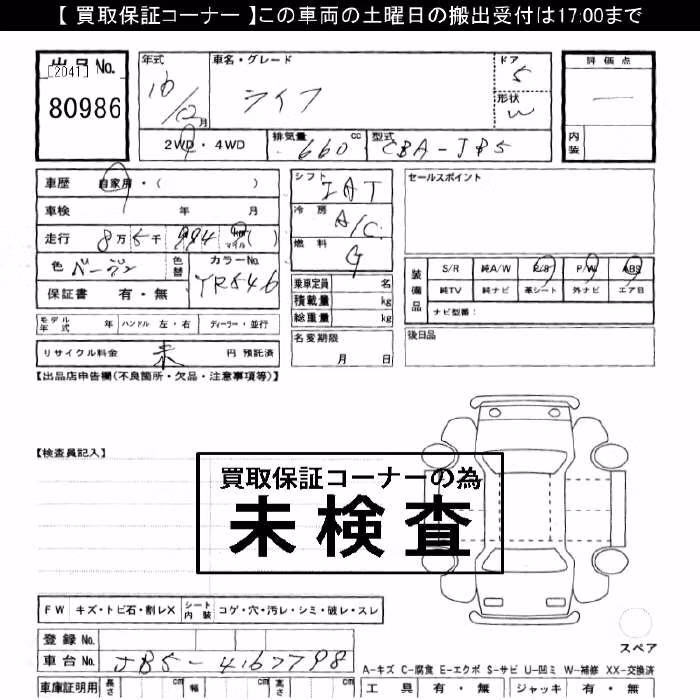 【 買取保証コーナー 】この車両の土曜日の搬出受付は17:00まで
出品 No.
[2041]
80986
年式 車名・グレード ドア 評価点
16/12月 ライフ 5 ー
形状 W
2WD・4WD 排気量 660 cc 型式 CBA-JB5
内装
車歴 自家用・( )
車検 年 月
走行 8万 千 km マイル ( )
色 色替 カラーNo. YR546
保証書 有・無
モデル年式 年 ハンドル 左・右 ディーラー・並行
リサイクル料金 未 円 預託済
シフト IAT
冷房 A/C
燃料 G
乗車定員 名
積載量 kg
総重量 kg
名変期限
月 日
セールスポイント
装備品 S/R 純A/W P/S P/W ABS
純TV 純ナビ 革シート 外ナビ エアB
ナビ型番:
後日品
【出品店申告欄(不良箇所・欠品・注意事項等)】
【検査員記入】
買取保証コーナーの為
未検査
FW キズ・トビ石・割レX シート内装 コゲ・穴・汚レ・シミ・破レ・スレ
登録 No.
車台 No. JB5-4167798
スペア
A-キズ C-腐食 E-エクボ S-サビ U-凹ミ W-補修 XX-交換済
車庫証明用 長さ cm 幅 cm 高さ cm
工具 有・無 ジャッキ 有・無